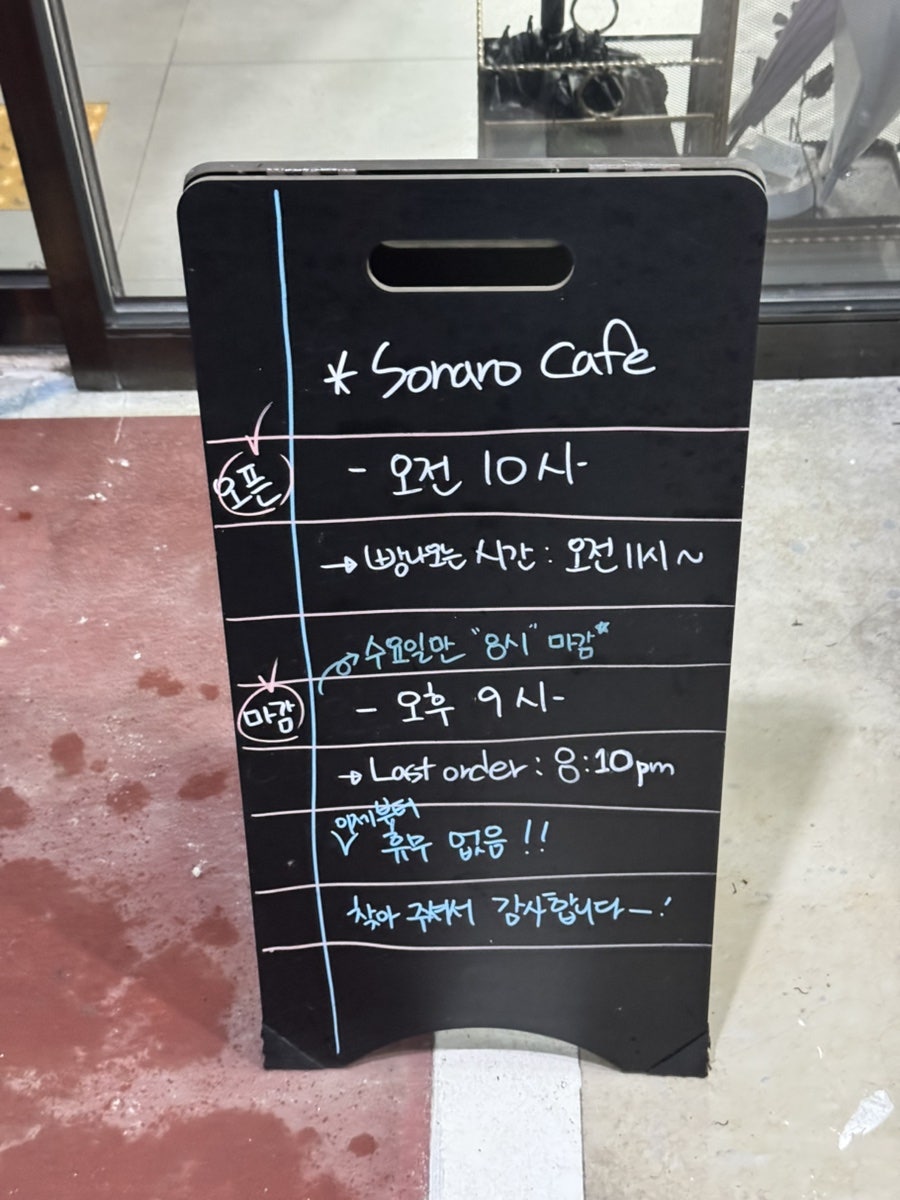 * Sonaro Cafe
오픈 - 오전 10시-
→ 빵나오는 시간 : 오전 11시 ~
수요일만 "8시" 마감*
마감 - 오후 9시-
→ Last order : 8:10pm
이제부터
휴무 없음 !!
찾아 주셔서 감사합니다—!